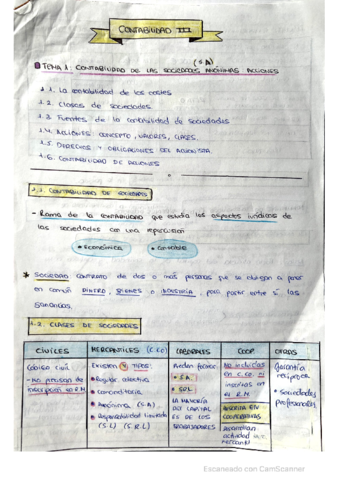 CONTABILIDAD III
(S.A)
TEMA 1: CONTABILIDAD DE LAS SOCIEDADES ANONIMAS ACCIONES
1.1. La contabilidad de los
1.2. Clases de sociedades
1.3. Fuentes de la contabilidad de sociedades
1.4. ACCIONES: CONCEPTO, VALORES, CLASES.
1.5. DERECHOS Y OBLIGACIONES DEL ACCIONISTA.
1.6. CONTABILIDAD DE ACCIONES
1.1. CONTABILIDAD DE SOCIEDADES
- Rama de la contabilidad que estudia los aspectos jurídicos de
las sociedades con una repercusión
• Económica • Contable
* Sociedad contrato de dos o más personas que se obligan a poner
en común DINERO, BIENES o INDUSTRIA, para partir entre sí las
ganancias.
1.2. CLASES DE SOCIEDADES
CIVILES MERCANTILES (C.Co) LABORALES COOP. OTROS
Código civil
- No precisan de
inscripción en R.M
Existen 4 TIPOS:
• Regular colectiva
• Comanditaria
• Anónima (S.A)
• Responsabilidad limitada
(S.L) (S.R.L)
Pueden formar:
• S.A.
• S.D.L
LA MAYORÍA
DEL CAPITAL
ES DE LOS
TRABAJADORES
No incluidas
en C.Co. ni
inscritas en
el R.M
COOPERATIVAS
actividad
Garantía
recíproca
• Sociedades
profesionales
Escaneado con CamScanner